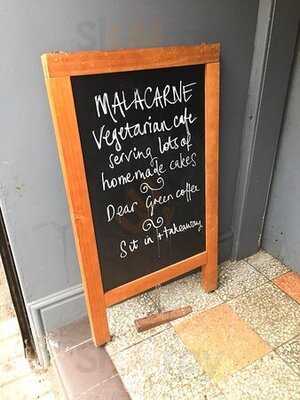 MALACARNE
vegetarian cafe
serving lots of
homemade cakes
Dear Green coffee
Sit in + takeaway